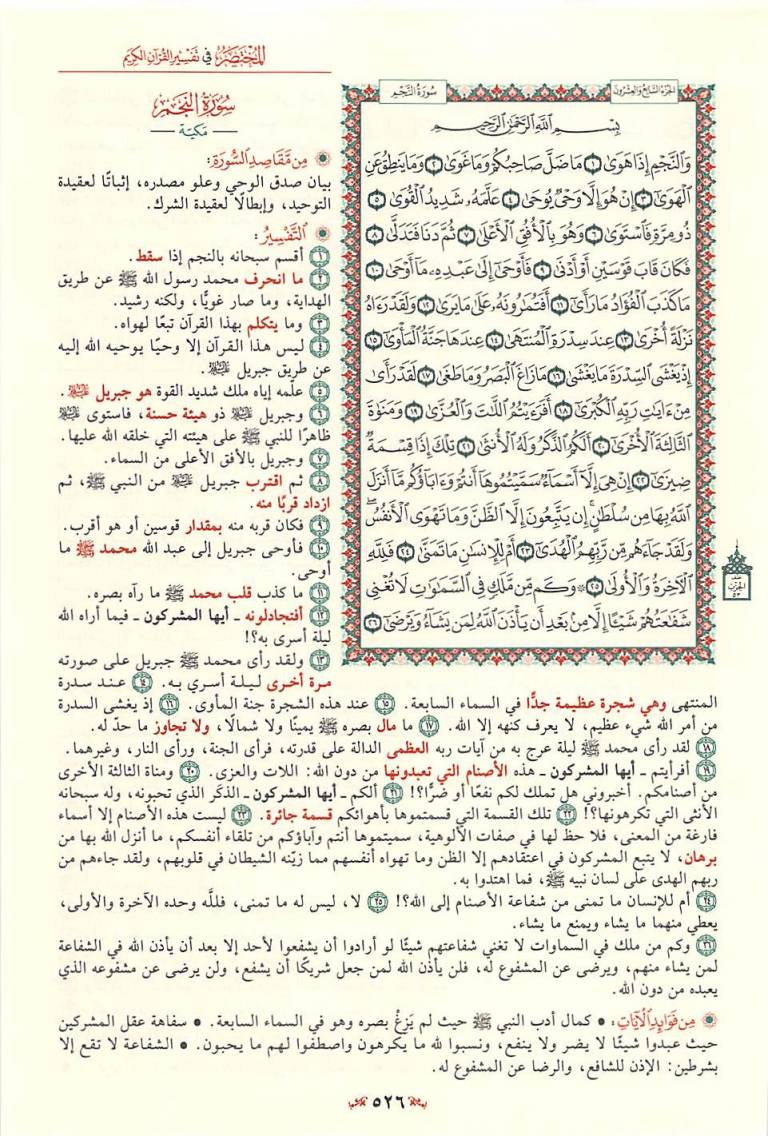 المختصر في تفسير القرآن الكريم
الجزء السابع والعشرون
سورة النجم
بِسْمِ ٱللَّهِ ٱلرَّحْمَٰنِ ٱلرَّحِيمِ
وَٱلنَّجْمِ إِذَا هَوَىٰ ١ مَا ضَلَّ صَاحِبُكُمْ وَمَا غَوَىٰ ٢ وَمَا يَنطِقُ عَنِ
ٱلْهَوَىٰٓ ٣ إِنْ هُوَ إِلَّا وَحْىٌ يُوحَىٰ ٤ عَلَّمَهُۥ شَدِيدُ ٱلْقُوَىٰ ٥
ذُو مِرَّةٍ فَٱسْتَوَىٰ ٦ وَهُوَ بِٱلْأُفُقِ ٱلْأَعْلَىٰ ٧ ثُمَّ دَنَا فَتَدَلَّىٰ ٨
فَكَانَ قَابَ قَوْسَيْنِ أَوْ أَدْنَىٰ ٩ فَأَوْحَىٰٓ إِلَىٰ عَبْدِهِۦ مَآ أَوْحَىٰ ١٠
مَا كَذَبَ ٱلْفُؤَادُ مَا رَأَىٰٓ ١١ أَفَتُمَٰرُونَهُۥ عَلَىٰ مَا يَرَىٰ ١٢ وَلَقَدْ رَءَاهُ
نَزْلَةً أُخْرَىٰ ١٣ عِندَ سِدْرَةِ ٱلْمُنتَهَىٰ ١٤ عِندَهَا جَنَّةُ ٱلْمَأْوَىٰٓ ١٥
إِذْ يَغْشَى ٱلسِّدْرَةَ مَا يَغْشَىٰ ١٦ مَا زَاغَ ٱلْبَصَرُ وَمَا طَغَىٰ ١٧ لَقَدْ رَأَىٰ
مِنْ ءَايَٰتِ رَبِّهِ ٱلْكُبْرَىٰٓ ١٨ أَفَرَءَيْتُمُ ٱللَّٰتَ وَٱلْعُزَّىٰ ١٩ وَمَنَوٰةَ
ٱلثَّالِثَةَ ٱلْأُخْرَىٰٓ ٢٠ أَلَكُمُ ٱلذَّكَرُ وَلَهُ ٱلْأُنثَىٰ ٢١ تِلْكَ إِذًا قِسْمَةٌ
ضِيزَىٰٓ ٢٢ إِنْ هِىَ إِلَّآ أَسْمَآءٌ سَمَّيْتُمُوهَآ أَنتُمْ وَءَابَآؤُكُم مَّآ أَنزَلَ
ٱللَّهُ بِهَا مِن سُلْطَٰنٍ إِن يَتَّبِعُونَ إِلَّا ٱلظَّنَّ وَمَا تَهْوَى ٱلْأَنفُسُ ۖ
وَلَقَدْ جَآءَهُم مِّن رَّبِّهِمُ ٱلْهُدَىٰٓ ٢٣ أَمْ لِلْإِنسَٰنِ مَا تَمَنَّىٰ ٢٤ فَلِلَّهِ
ٱلْءَاخِرَةُ وَٱلْأُولَىٰ ٢٥ ۞ وَكَم مِّن مَّلَكٍ فِى ٱلسَّمَٰوَٰتِ لَا تُغْنِى
شَفَٰعَتُهُمْ شَيْـًٔا إِلَّا مِنۢ بَعْدِ أَن يَأْذَنَ ٱللَّهُ لِمَن يَشَآءُ وَيَرْضَىٰٓ ٢٦
سورة النجم
— مكية —
من مقاصد السورة:
بيان صدق الوحي وعلو مصدره، إثباتًا لعقيدة
التوحيد، وإبطالًا لعقيدة الشرك.
التفسير:
١ أقسم سبحانه بالنجم إذا سقط.
٢ ما انحرف محمد رسول الله ﷺ عن طريق
الهداية، وما صار غويًّا، ولكنه رشيد.
٣ وما يتكلم بهذا القرآن تبعًا لهواه.
٤ ليس هذا القرآن إلا وحيًا يوحيه الله إليه
عن طريق جبريل عليه السلام.
٥ علّمه إياه ملك شديد القوة هو جبريل عليه السلام.
٦ وجبريل عليه السلام ذو هيئة حسنة، فاستوى عليه السلام
ظاهرًا للنبي ﷺ على هيئته التي خلقه الله عليها.
٧ وجبريل بالأفق الأعلى من السماء.
٨ ثم اقترب جبريل عليه السلام من النبي ﷺ، ثم
ازداد قربًا منه.
٩ فكان قربه منه بمقدار قوسين أو هو أقرب.
١٠ فأوحى جبريل إلى عبد الله محمد ﷺ ما
أوحى.
١١ ما كذب قلب محمد ﷺ ما رآه بصره.
١٢ أفتجادلونه ـ أيها المشركون ـ فيما أراه الله
ليلة أسرى به؟!
١٣ ولقد رأى محمد ﷺ جبريل على صورته
مرة أخرى ليلة أسري به. ١٤ عند سدرة
المنتهى وهي شجرة عظيمة جدًّا في السماء السابعة. ١٥ عند هذه الشجرة جنة المأوى. ١٦ إذ يغشى السدرة
من أمر الله شيء عظيم، لا يعرف كنهه إلا الله. ١٧ ما مال بصره ﷺ يمينًا ولا شمالًا، ولا تجاوز ما حدّ له.
١٨ لقد رأى محمد ﷺ ليلة عرج به من آيات ربه العظمى الدالة على قدرته، فرأى الجنة، ورأى النار، وغيرهما.
١٩ أفرأيتم ـ أيها المشركون ـ هذه الأصنام التي تعبدونها من دون الله: اللات والعزى. ٢٠ ومناة الثالثة الأخرى
من أصنامكم. أخبروني هل تملك لكم نفعًا أو ضرًّا؟! ٢١ ألكم ـ أيها المشركون ـ الذكَر الذي تحبونه، وله سبحانه
الأنثى التي تكرهونها؟! ٢٢ تلك القسمة التي قسمتموها بأهوائكم قسمة جائرة. ٢٣ ليست هذه الأصنام إلا أسماء
فارغة من المعنى، فلا حظ لها في صفات الألوهية، سميتموها أنتم وآباؤكم من تلقاء أنفسكم، ما أنزل الله بها من
برهان، لا يتبع المشركون في اعتقادهم إلا الظن وما تهواه أنفسهم مما زيّنه الشيطان في قلوبهم، ولقد جاءهم من
ربهم الهدى على لسان نبيه ﷺ، فما اهتدوا به.
٢٤ أم للإنسان ما تمنى من شفاعة الأصنام إلى الله؟! ٢٥ لا، ليس له ما تمنى، فللَّه وحده الآخرة والأولى،
يعطي منهما ما يشاء ويمنع ما يشاء.
٢٦ وكم من ملك في السماوات لا تغني شفاعتهم شيئًا لو أرادوا أن يشفعوا لأحد إلا بعد أن يأذن الله في الشفاعة
لمن يشاء منهم، ويرضى عن المشفوع له، فلن يأذن الله لمن جعل شريكًا أن يشفع، ولن يرضى عن مشفوعه الذي
يعبده من دون الله.
من فوائد الآيات: • كمال أدب النبي ﷺ حيث لم يَزِغْ بصره وهو في السماء السابعة. • سفاهة عقل المشركين
حيث عبدوا شيئًا لا يضر ولا ينفع، ونسبوا لله ما يكرهون واصطفوا لهم ما يحبون. • الشفاعة لا تقع إلا
بشرطين: الإذن للشافع، والرضا عن المشفوع له.
٥٢٦